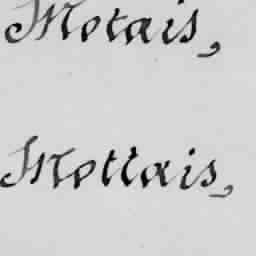 Motais,
Mottais,